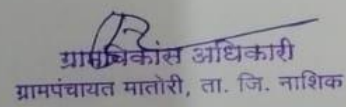 ग्रामविकास अधिकारी
ग्रामपंचायत मातोरी, ता. जि. नाशिक